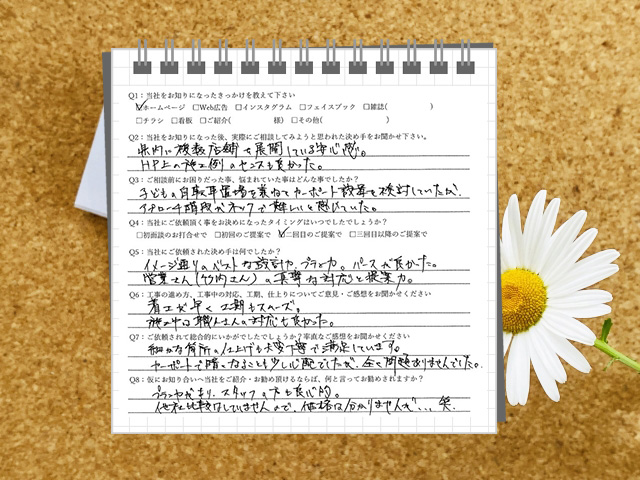 Q1：当社をお知りになったきっかけを教えて下さい
☑ホームページ　□Web広告　□インスタグラム　□フェイスブック　□雑誌(　　　　　)
□チラシ　□看板　□ご紹介(　　　　　様)　□その他(　　　　　)
Q2：当社をお知りになった後、実際にご相談してみようと思われた決め手をお聞かせ下さい。
県内に複数店舗を展開している安心感。
HP上の施工例のセンスも良かった。
Q3：ご相談前にお困りだった事、悩まれていた事はどんな事でしたか？
子どもの自転車置場を兼ねてカーポート設置を検討していたが、
アプローチ階段がネックで難しいと感じていた。
Q4：当社にご依頼頂く事をお決めになったタイミングはいつでしたでしょうか？
□初面談のお打合せで　□初回のご提案で　☑二回目のご提案で　□三回目以降のご提案で
Q5：当社にご依頼された決め手は何でしたか？
イメージ通りのベストな設計力、プラン力。パースが良かった。
営業さん(竹内さん)の真摯な対応と提案力。
Q6：工事の進め方、工事中の対応、工期、仕上りについてご意見・ご感想をお聞かせください
着工が早く工期もスムーズ。
施工中の職人さんの対応も良かった。
Q7：ご依頼されて総合的にいかがでしたでしょうか？率直なご感想をお聞かせください
細かな箇所の仕上げも大変丁寧で満足しています。
カーポートで暗くなることも少し心配でしたが、全く問題ありませんでした。
Q8：仮にお知り合いへ当社をご紹介・お勧め頂けるならば、何と言ってお勧めされますか？
プラン力があり、スタッフの方も良心的。
他社比較はしていませんので、価格は分かりませんが… 笑